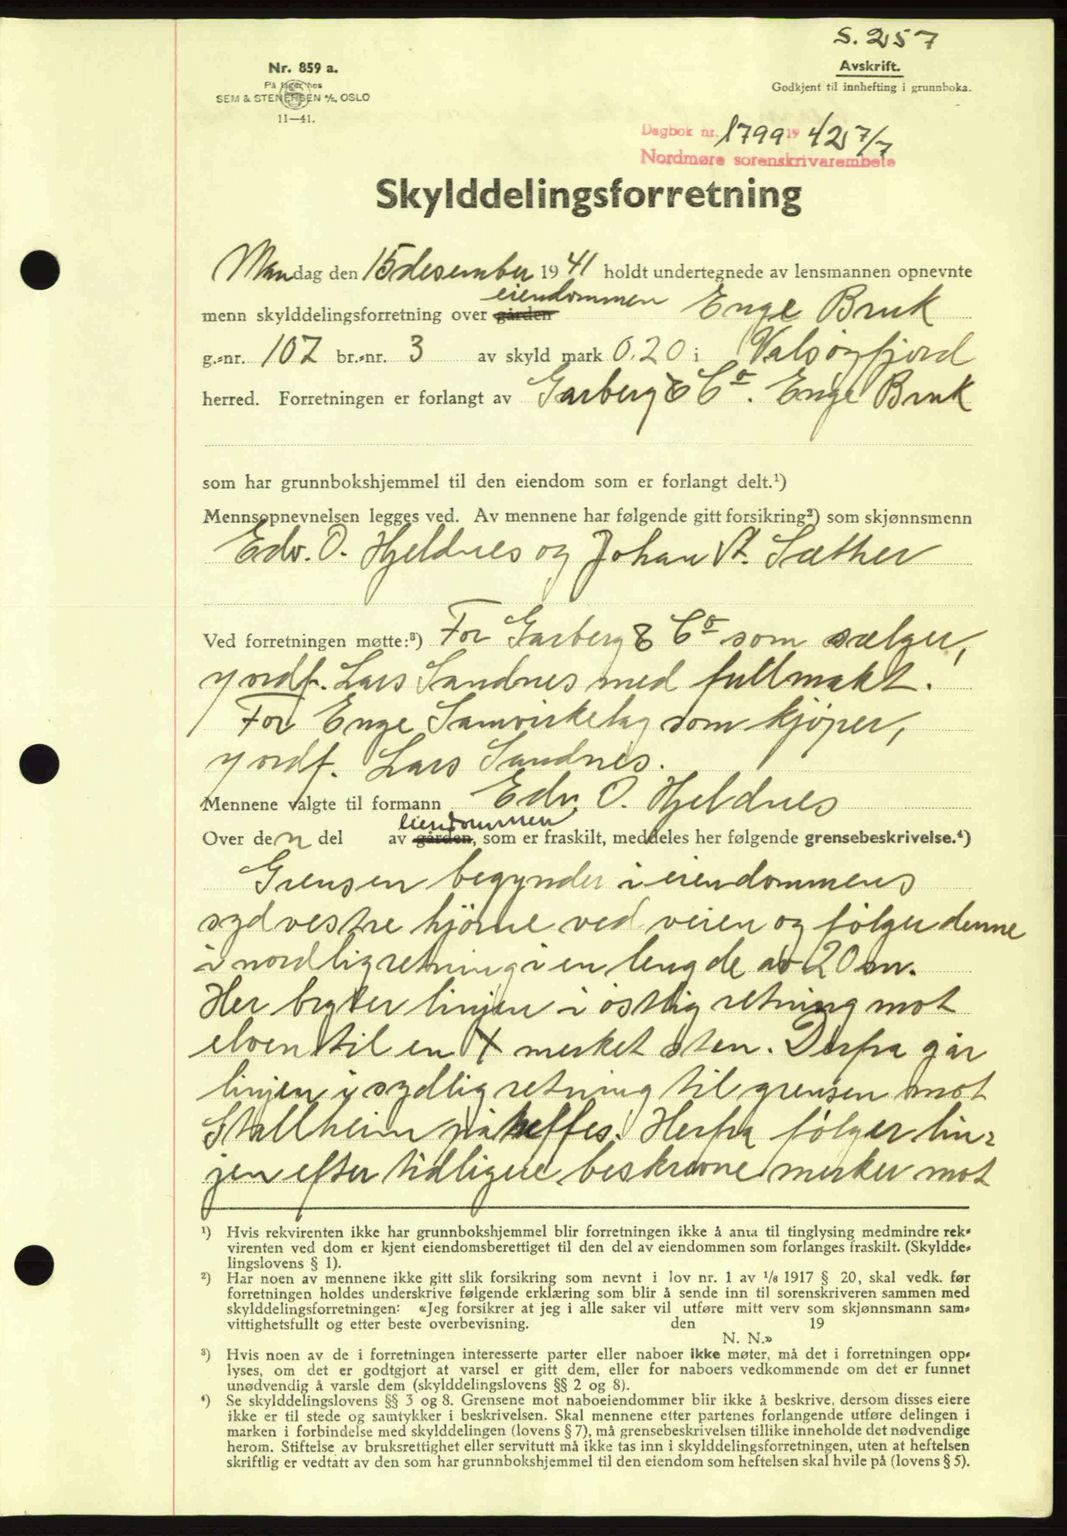 S. 257
Nr. 859 a.
På lager hos
SEM & STENERSEN A/S, OSLO
11—41.
Avskrift.
Godkjent til innhefting i grunnboka.
Dagbok nr. 1799 1942 7/7
Nordmøre sorenskrivarembete
Skylddelingsforretning
Mandag den 15 desember 1941 holdt undertegnede av lensmannen opnevnte
menn skylddelingsforretning over gården eiendommen Enge Bruk
g.-nr. 107 br.-nr. 3 av skyld mark 0.20 i Valsøyfjord
herred. Forretningen er forlangt av Garberg & Co. Enge Bruk
som har grunnbokshjemmel til den eiendom som er forlangt delt.¹)
Mennsopnevnelsen legges ved. Av mennene har følgende gitt forsikring²) som skjønnsmenn
Edv. O. Hjeldnes og Johan A. Sæther
Ved forretningen møtte:³) For Garberg & Co som sælger,
v ordf. Lars Sandnes med fullmakt.
For Enge Samvirkelag som kjøper,
v ordf. Lars Sandnes.
Mennene valgte til formann Edv. O. Hjeldnes
Over den del av gården eiendommen, som er fraskilt, meddeles her følgende grensebeskrivelse.⁴)
Grensen begynder i eiendommens
sydvestre hjørne ved veien og følger denne
i nordlig retning i en lengde av 20 m.
Her bryter linjen i østlig retning mot
elven til en X merket sten. Derfra går
linjen i sydlig retning til grensen mot
Stallheim påtreffes. Herfra følger lin-
jen efter tidligere beskrevne merker mot
¹) Hvis rekvirenten ikke har grunnbokshjemmel blir forretningen ikke å anta til tinglysing medmindre rek-
virenten ved dom er kjent eiendomsberettiget til den del av eiendommen som forlanges fraskilt. (Skyldde-
lingslovens § 1).
²) Har noen av mennene ikke gitt slik forsikring som nevnt i lov nr. 1 av 1/6 1917 § 20, skal vedk. før
forretningen holdes underskrive følgende erklæring som blir å sende inn til sorenskriveren sammen med
skylddelingsforretningen: «Jeg forsikrer at jeg i alle saker vil utføre mitt verv som skjønnsmann sam-
vittighetsfullt og etter beste overbevisning. den 19
N. N.»
³) Hvis noen av de i forretningen interesserte parter eller naboer ikke møter, må det i forretningen opp-
lyses, om det er godtgjort at varsel er gitt dem, eller for naboers vedkommende om det er funnet
unødvendig å varsle dem (skylddelingslovens §§ 2 og 8).
⁴) Se skylddelingslovens §§ 3 og 8. Grensene mot naboeiendommer blir ikke å beskrive, dersom disses eiere
ikke er til stede og samtykker i beskrivelsen. Skal mennene etter partenes forlangende utføre delingen i
marken i forbindelse med skylddelingen (lovens § 7), må grensebeskrivelsen tillike inneholde det nødvendige
herom. Stiftelse av bruksrettighet eller servitutt må ikke tas inn i skylddelingsforretningen, uten at heftelsen
skriftlig er vedtatt av den som har grunnbokshjemmel til den eiendom som heftelsen skal hvile på (lovens § 5).